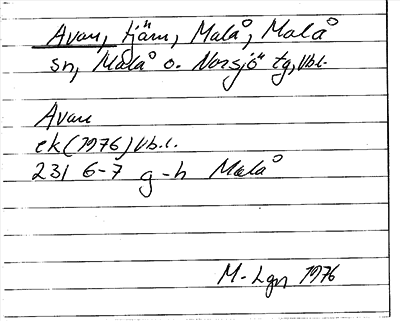 Avan, tjärn, Malå, Malå
sn, Malå o. Norsjö tg, Vbl.
Avan
ek (1976) Vb.l.
231 6-7 g-h Malå
M-Lgn 1976